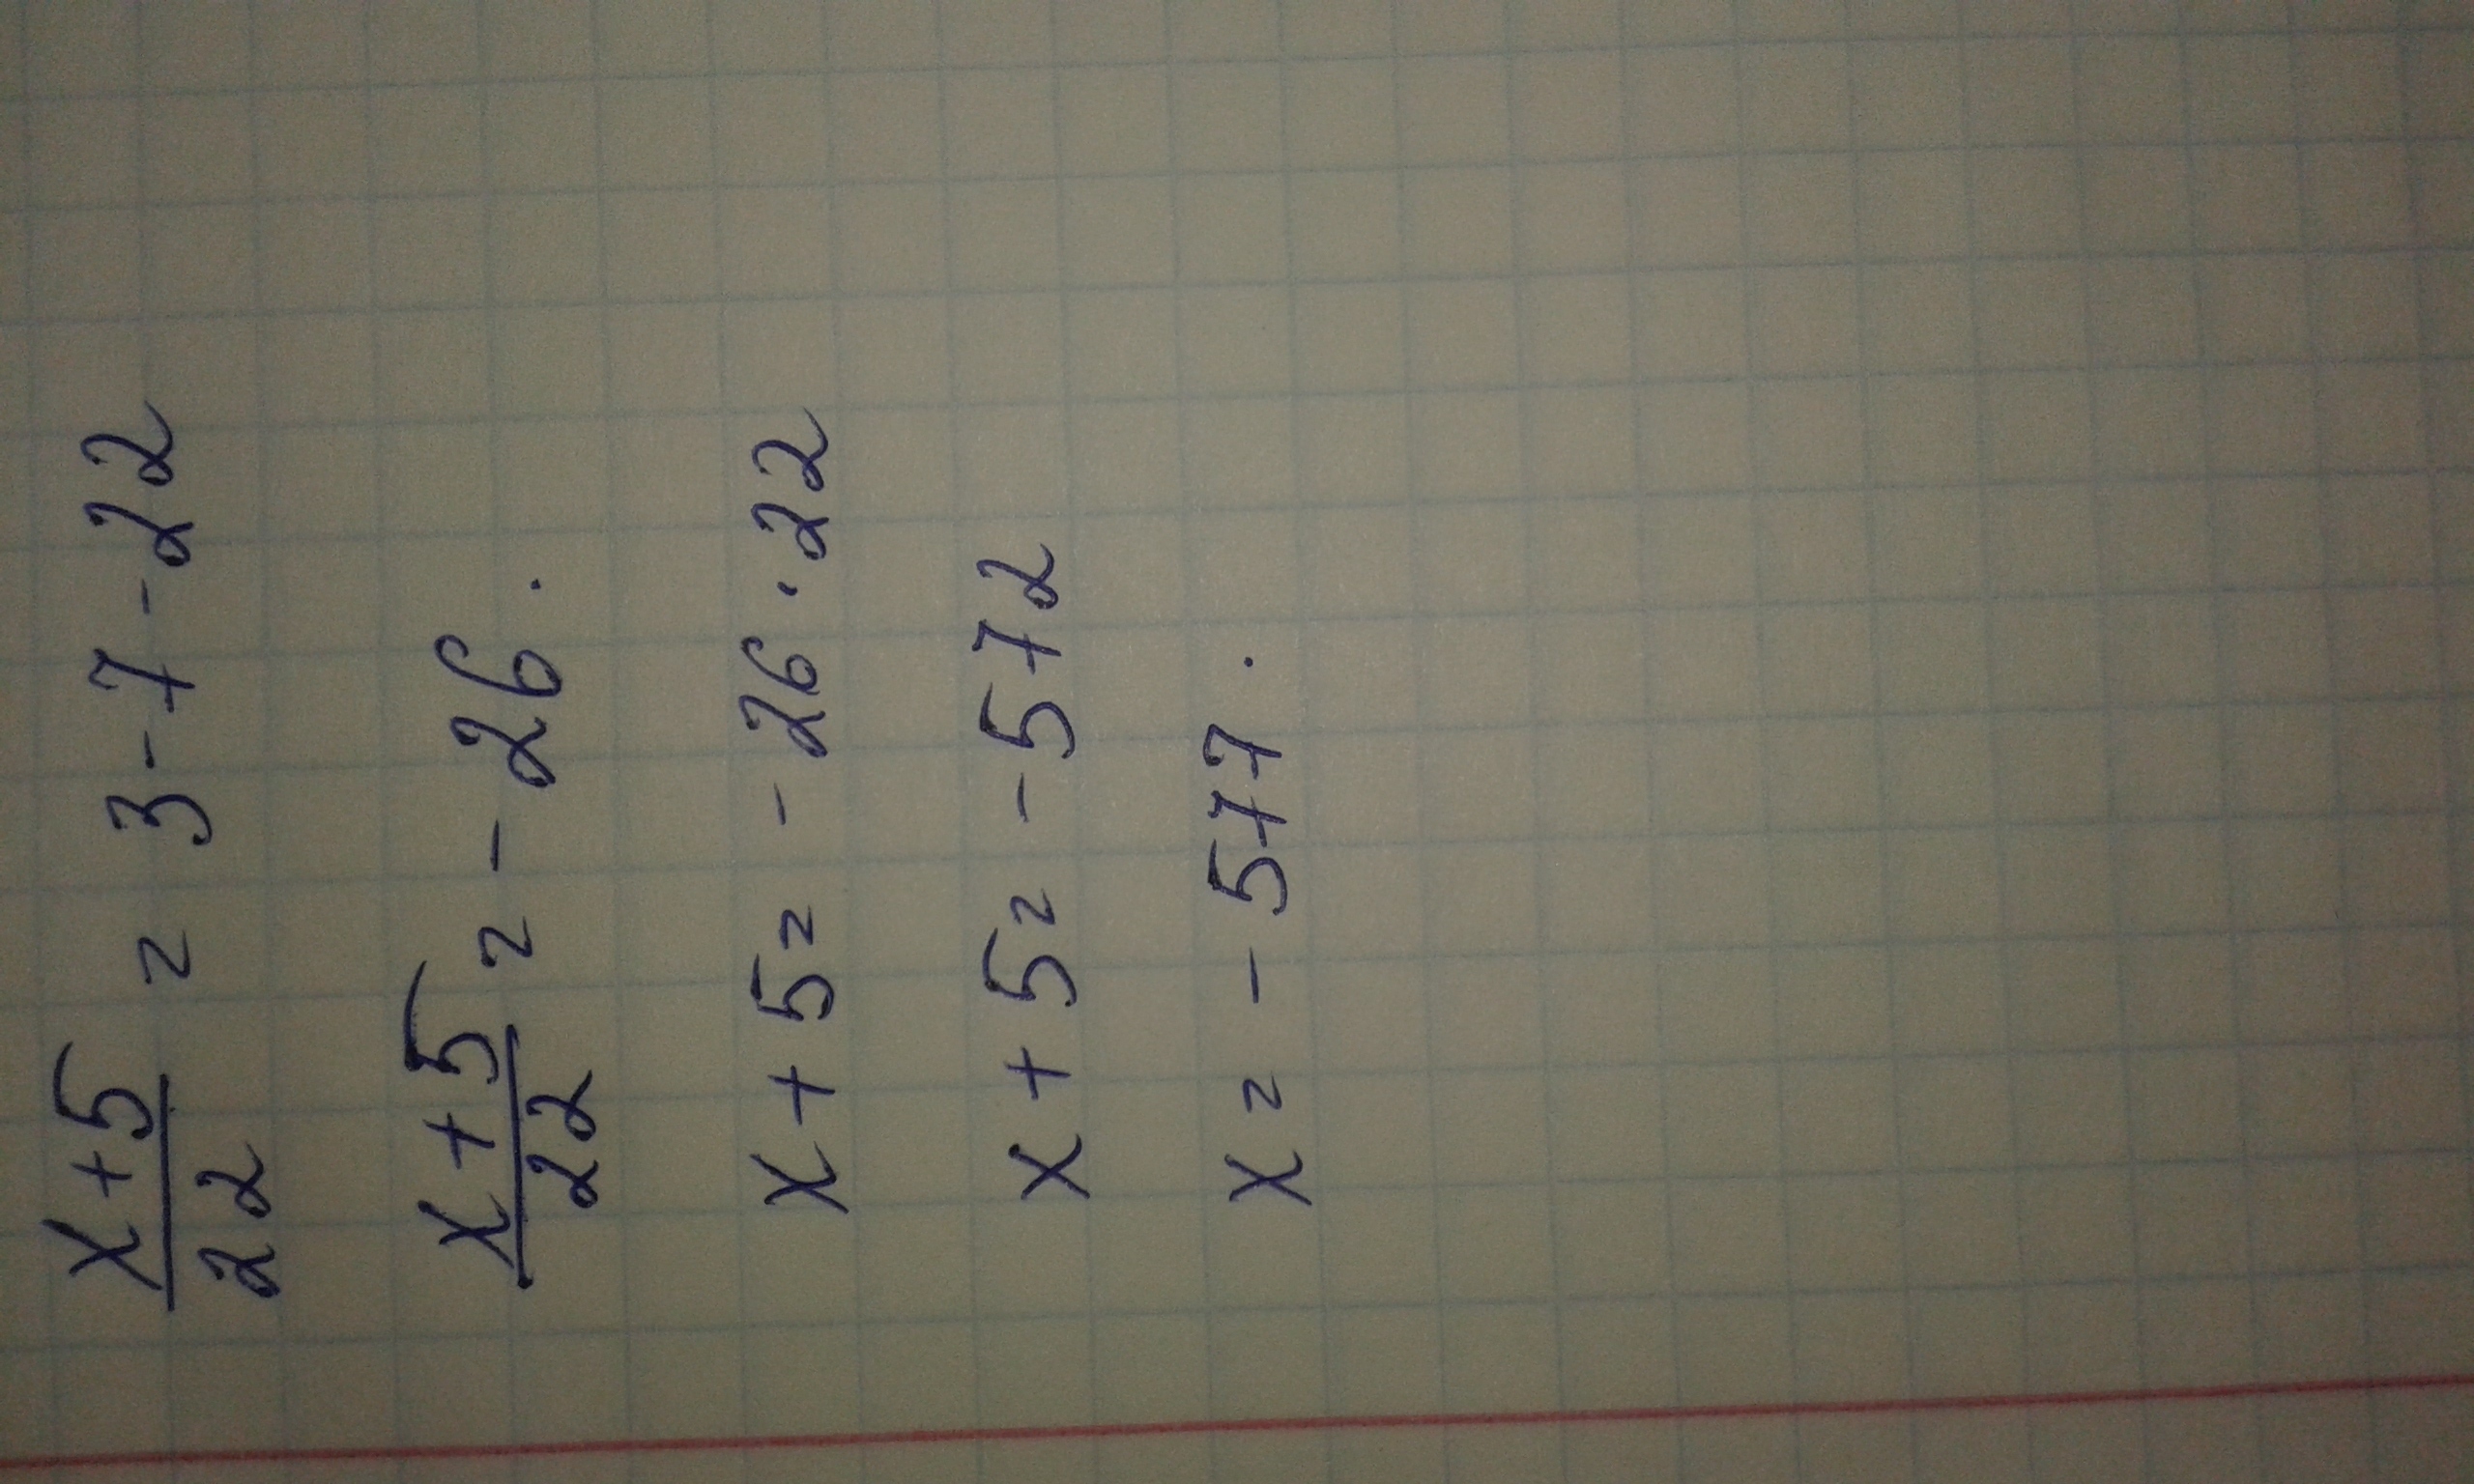 x+5/22 = 3-7-22
x+5/22 = -26.
x+5= -26·22
x+5= -572
x= -577.